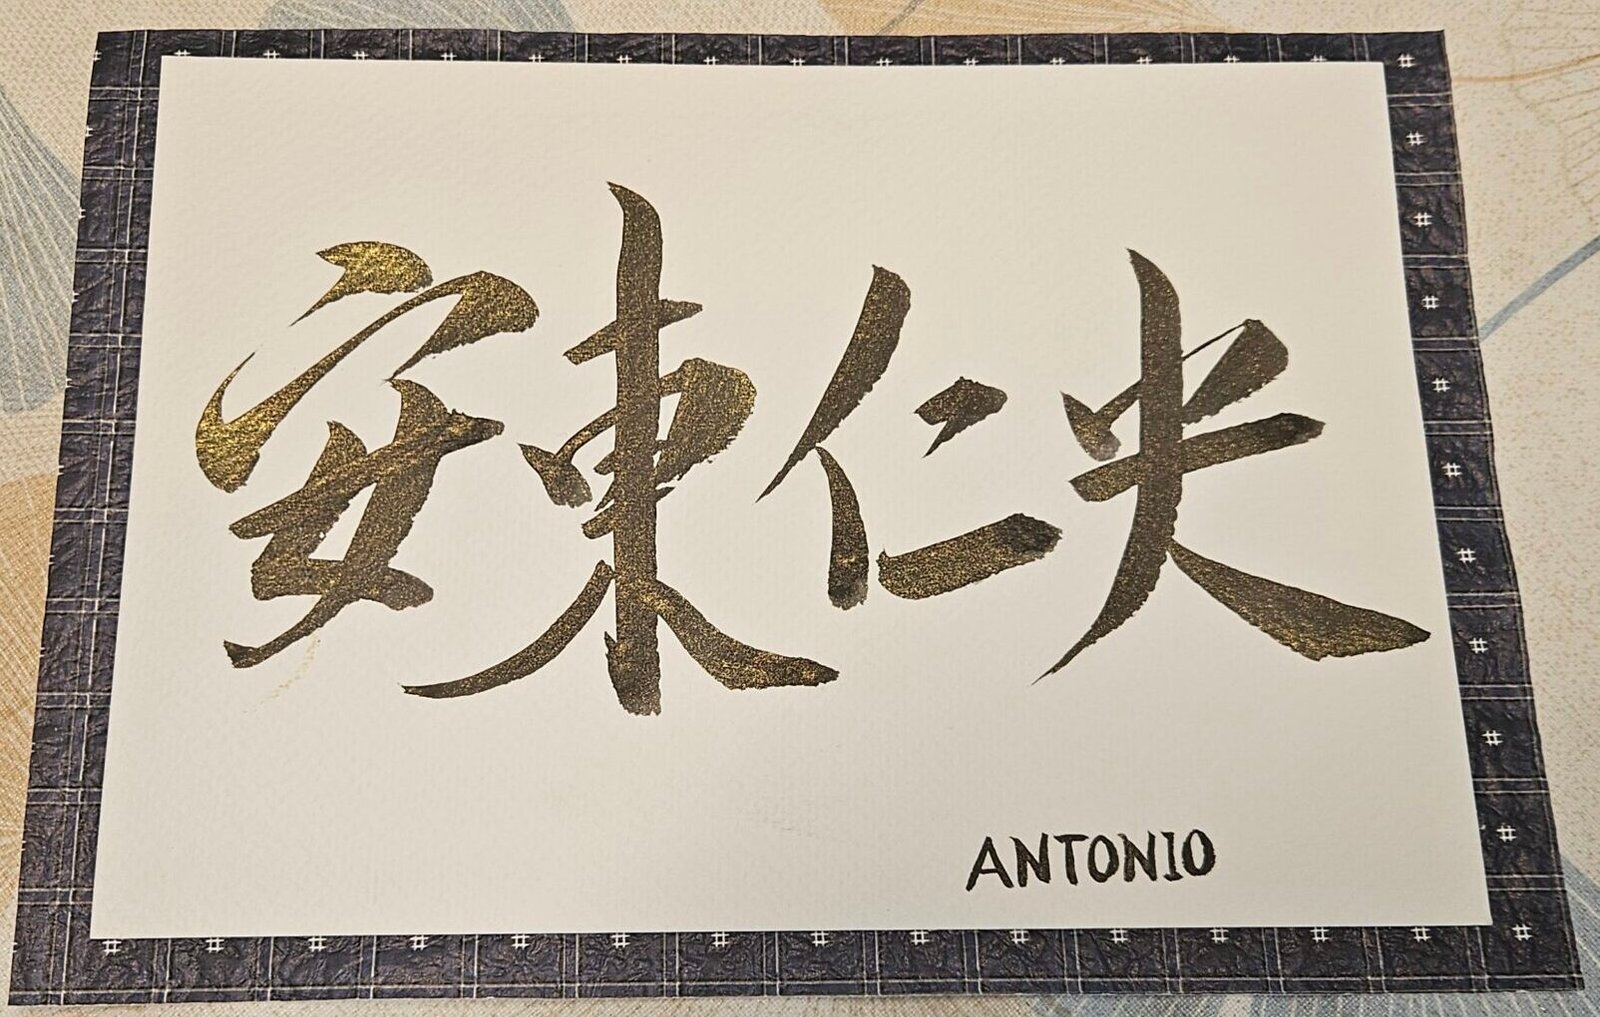 安東仁央
ANTONIO